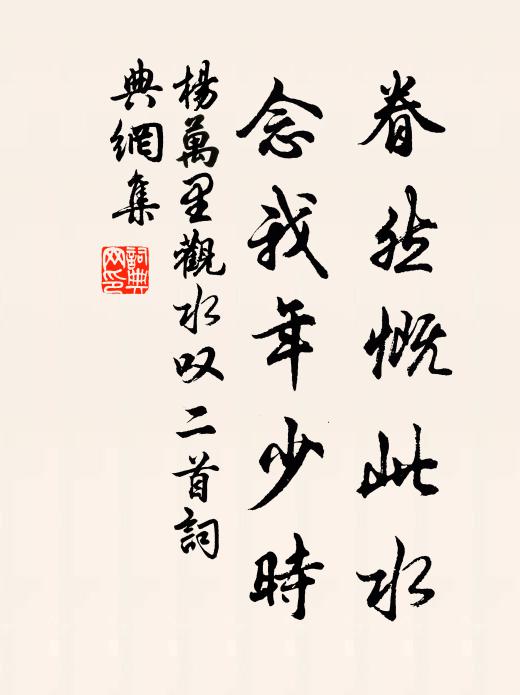 眷然慨此水
念我年少時
楊萬里觀水叹二首詞
典網集
詞典網印